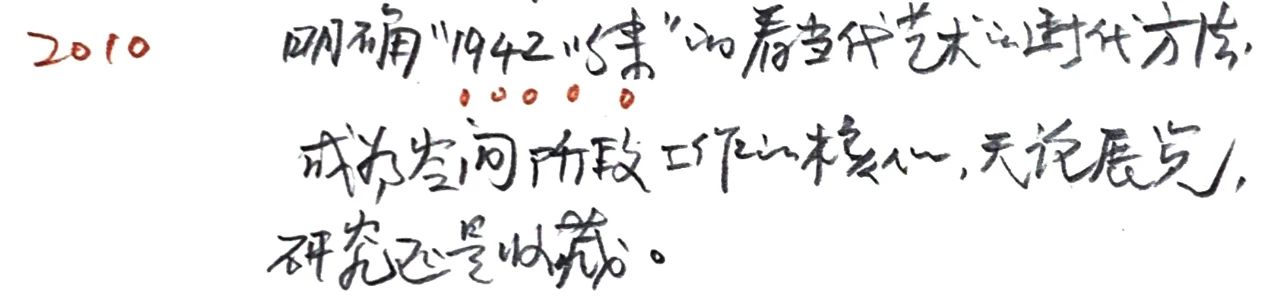 2010 明确"1942以来"的看当代艺术的时代方法,
成为空间阶段工作的核心,无论展览,
研究还是收藏。